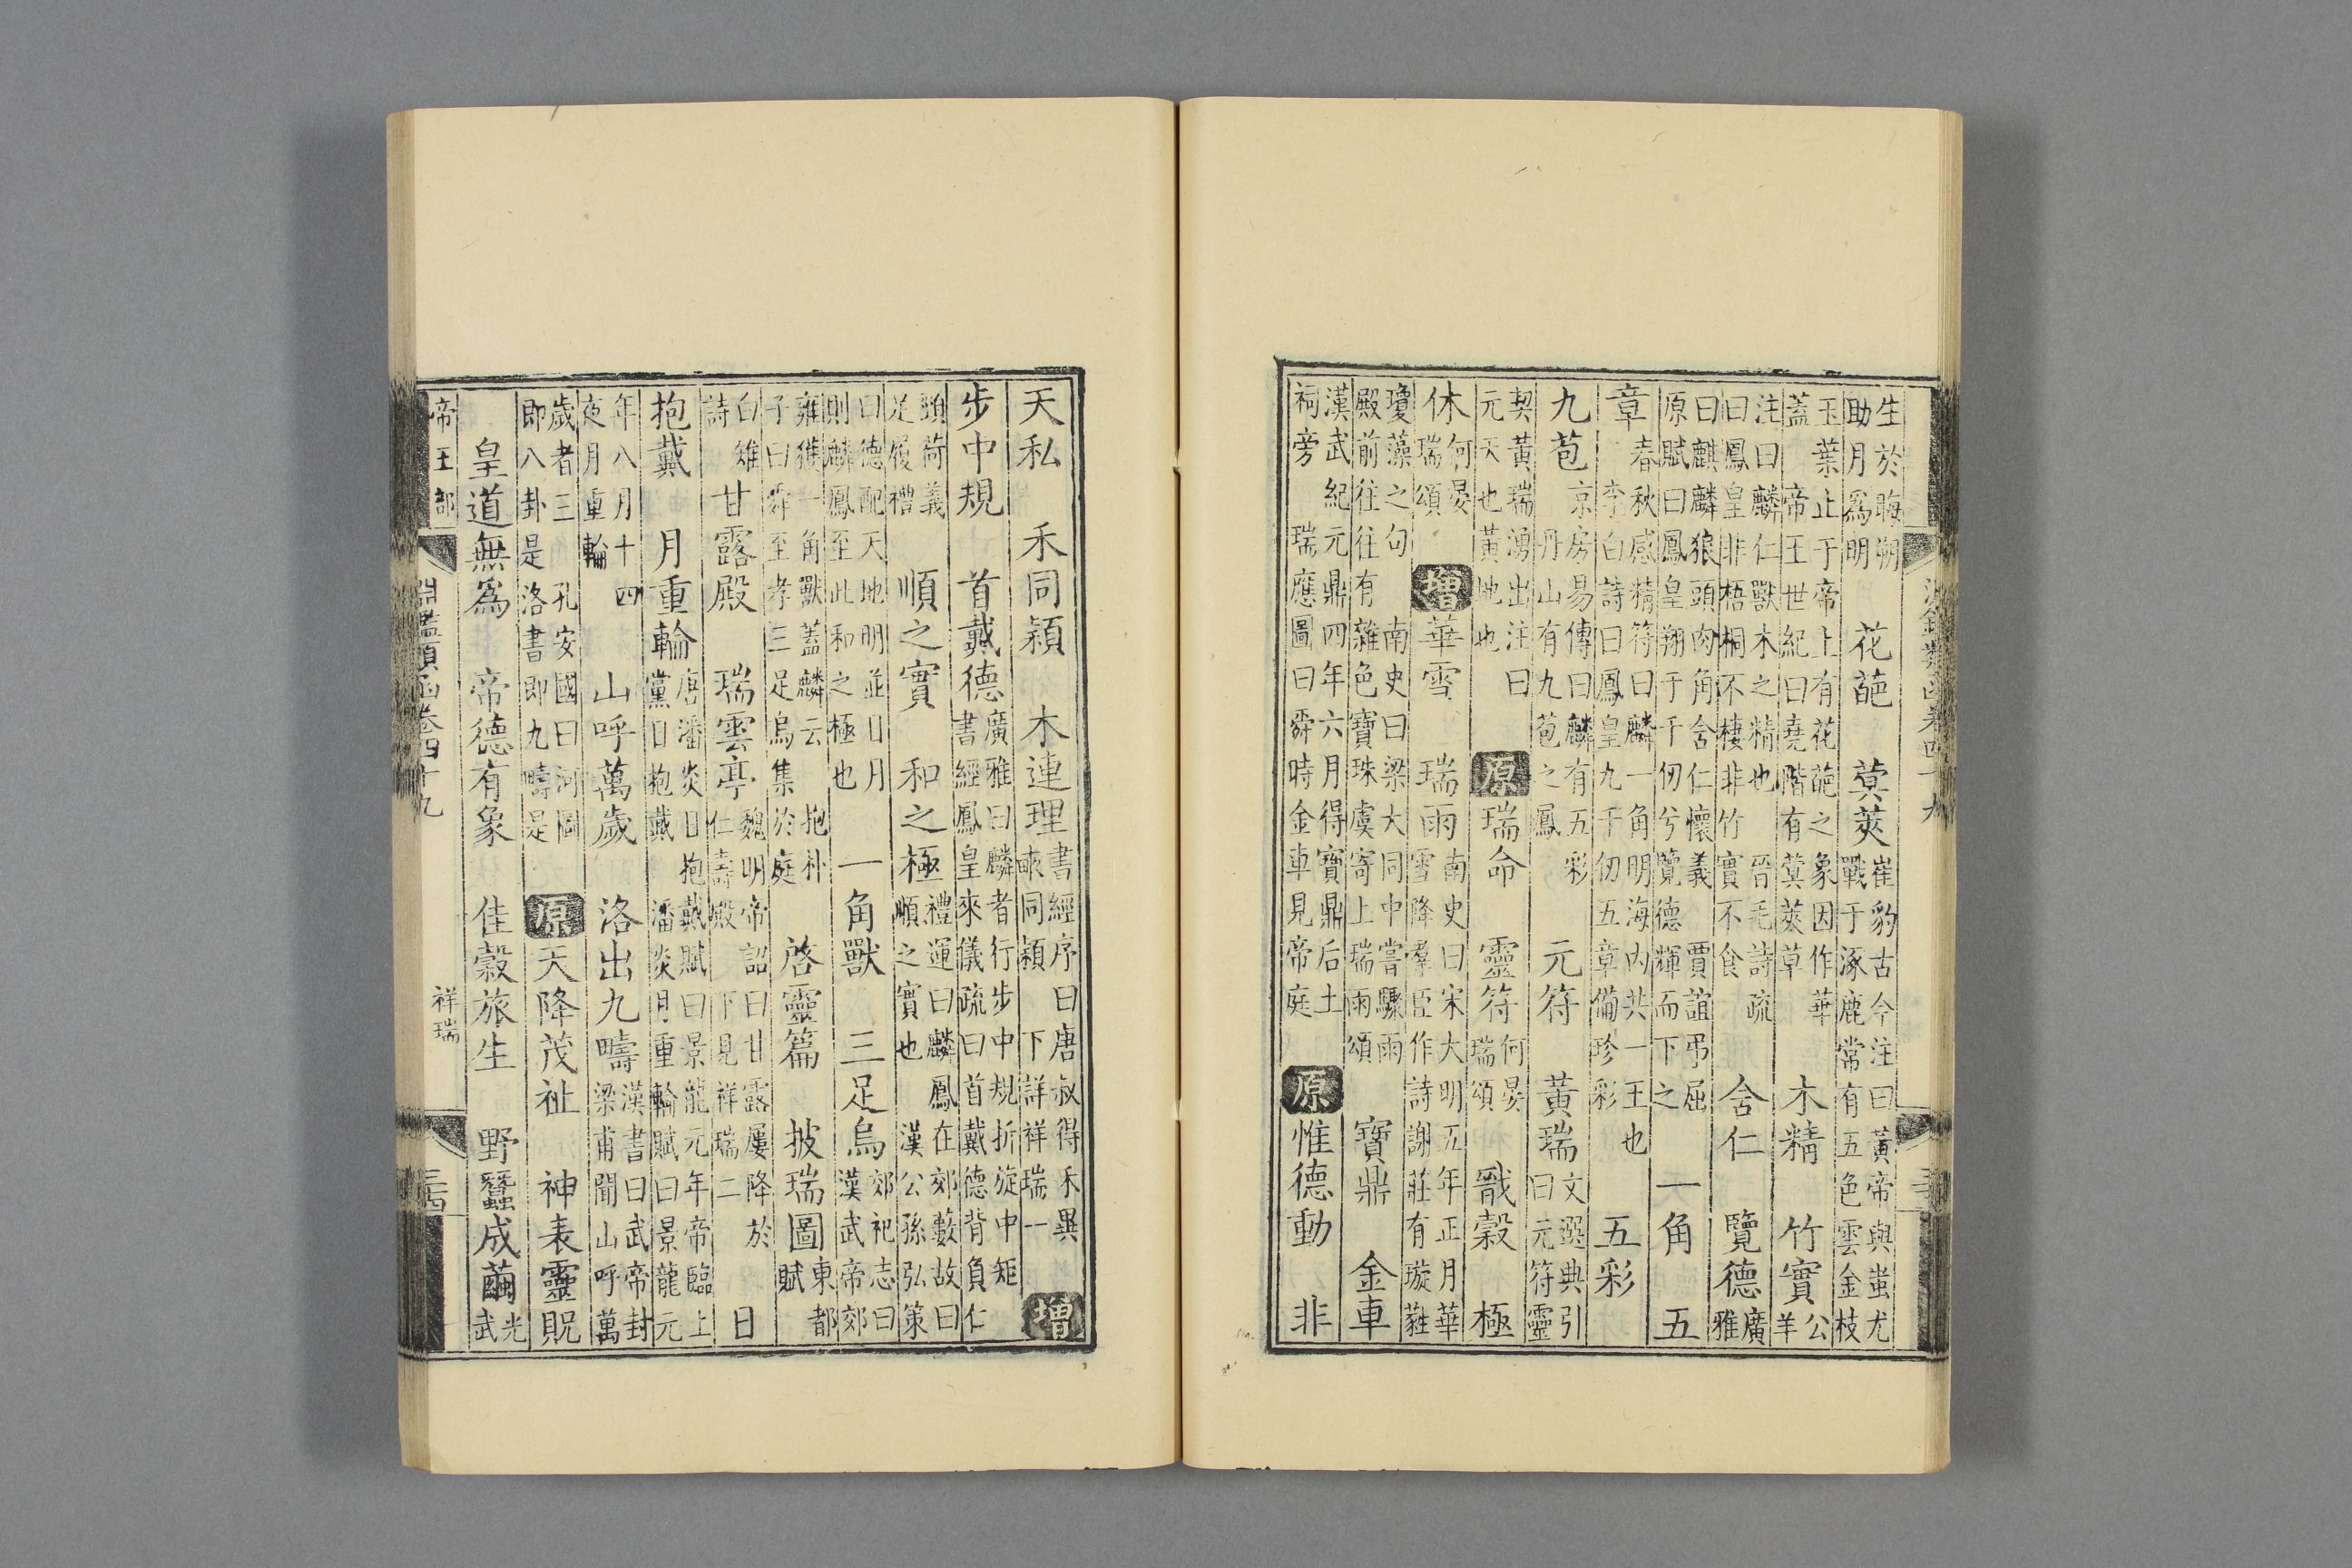 生於晦朔助月爲明 花葩 蓂莢 崔豹古今注曰黃帝與蚩尤戰于涿鹿常有五色雲金枝
玉葉止于帝上有花葩之象因作華蓋 帝王世紀曰堯階有蓂莢草 木精 竹實 公羊
注曰麟仁獸木之精也 晉毛詩疏曰鳳皇非梧桐不棲非竹實不食 含仁 覽德 廣雅
曰麒麟狼頭肉角含仁懷義 賈誼弔屈原賦曰鳳皇翔于千仞兮覽德輝而下之 一角 五
章 春秋感精符曰麟一角明海內共一王也 李白詩曰鳳皇九千仞五章備珍彩 五彩
九苞 京房易傳曰麟有五彩 丹山有九苞之鳳 元符 黃瑞 文選典引曰元符靈
契黃瑞湧出注曰元天也黃地也 原 瑞命 靈符 何晏瑞頌 戩穀 極
休 何晏瑞頌 增 華雪 瑞雨 南史曰宋大明五年正月華雪降羣臣作詩謝莊有璇蕤
瓊藻之句 南史曰梁大同中嘗驟雨殿前往往有雜色寶珠虞寄上瑞雨頌 寶鼎 金車
漢武紀元鼎四年六月得寶鼎后土祠旁 瑞應圖曰舜時金車見帝庭 原 惟德動 非
天私 禾同穎 木連理 書經序曰唐叔得禾異畝同穎 下詳祥瑞一 增
步中規 首戴德 廣雅曰麟者行步中規折旋中矩 書經鳳皇來儀疏曰首戴德背負仁
頭荷義足履禮 順之實 和之極 禮運曰麟鳳在郊藪故曰順之實也 漢公孫弘策
曰德配天地明並日月則麟鳳至此和之極也 一角獸 三足烏 郊祀志曰漢武帝郊
雍獲一角獸蓋麟云 抱朴子曰舜至孝三足烏集於庭 啓靈篇 披瑞圖 東都賦
白雉詩 甘露殿 瑞雲亭 魏明帝詔曰甘露屢降於仁壽殿 下見祥瑞二 日
抱戴 月重輪 唐潘炎日抱戴賦曰景龍元年帝臨上黨日抱戴 潘炎月重輪賦曰景龍元
年八月十四夜月重輪 山呼萬歲 洛出九疇 漢書曰武帝封梁甫聞山呼萬
歲者三 孔安國曰河圖即八卦是洛書即九疇是 原 天降茂祉 神表靈貺
皇道無爲 帝德有象 佳穀旅生 野蠶成繭 光武
帝王部 淵鑑類函卷四十九 祥瑞